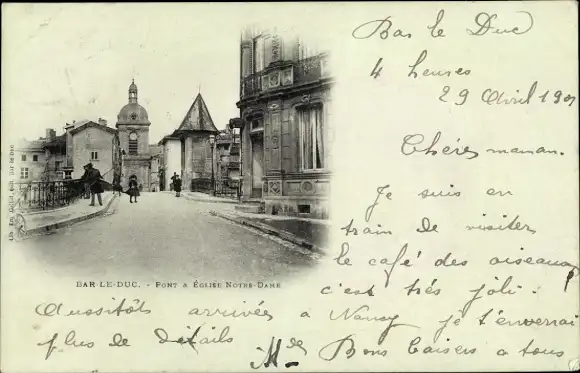 Bar le Duc
4 heures
29 Avril 190
Chère maman.
Je suis en
train de visiter
le café des oiseaux
c'est très joli.
BAR-LE-DUC. - PONT & ÉGLISE NOTRE-DAME
Aussitôt arrivée à Nancy je t'enverrai
plus de détails
Bons baisers a tous